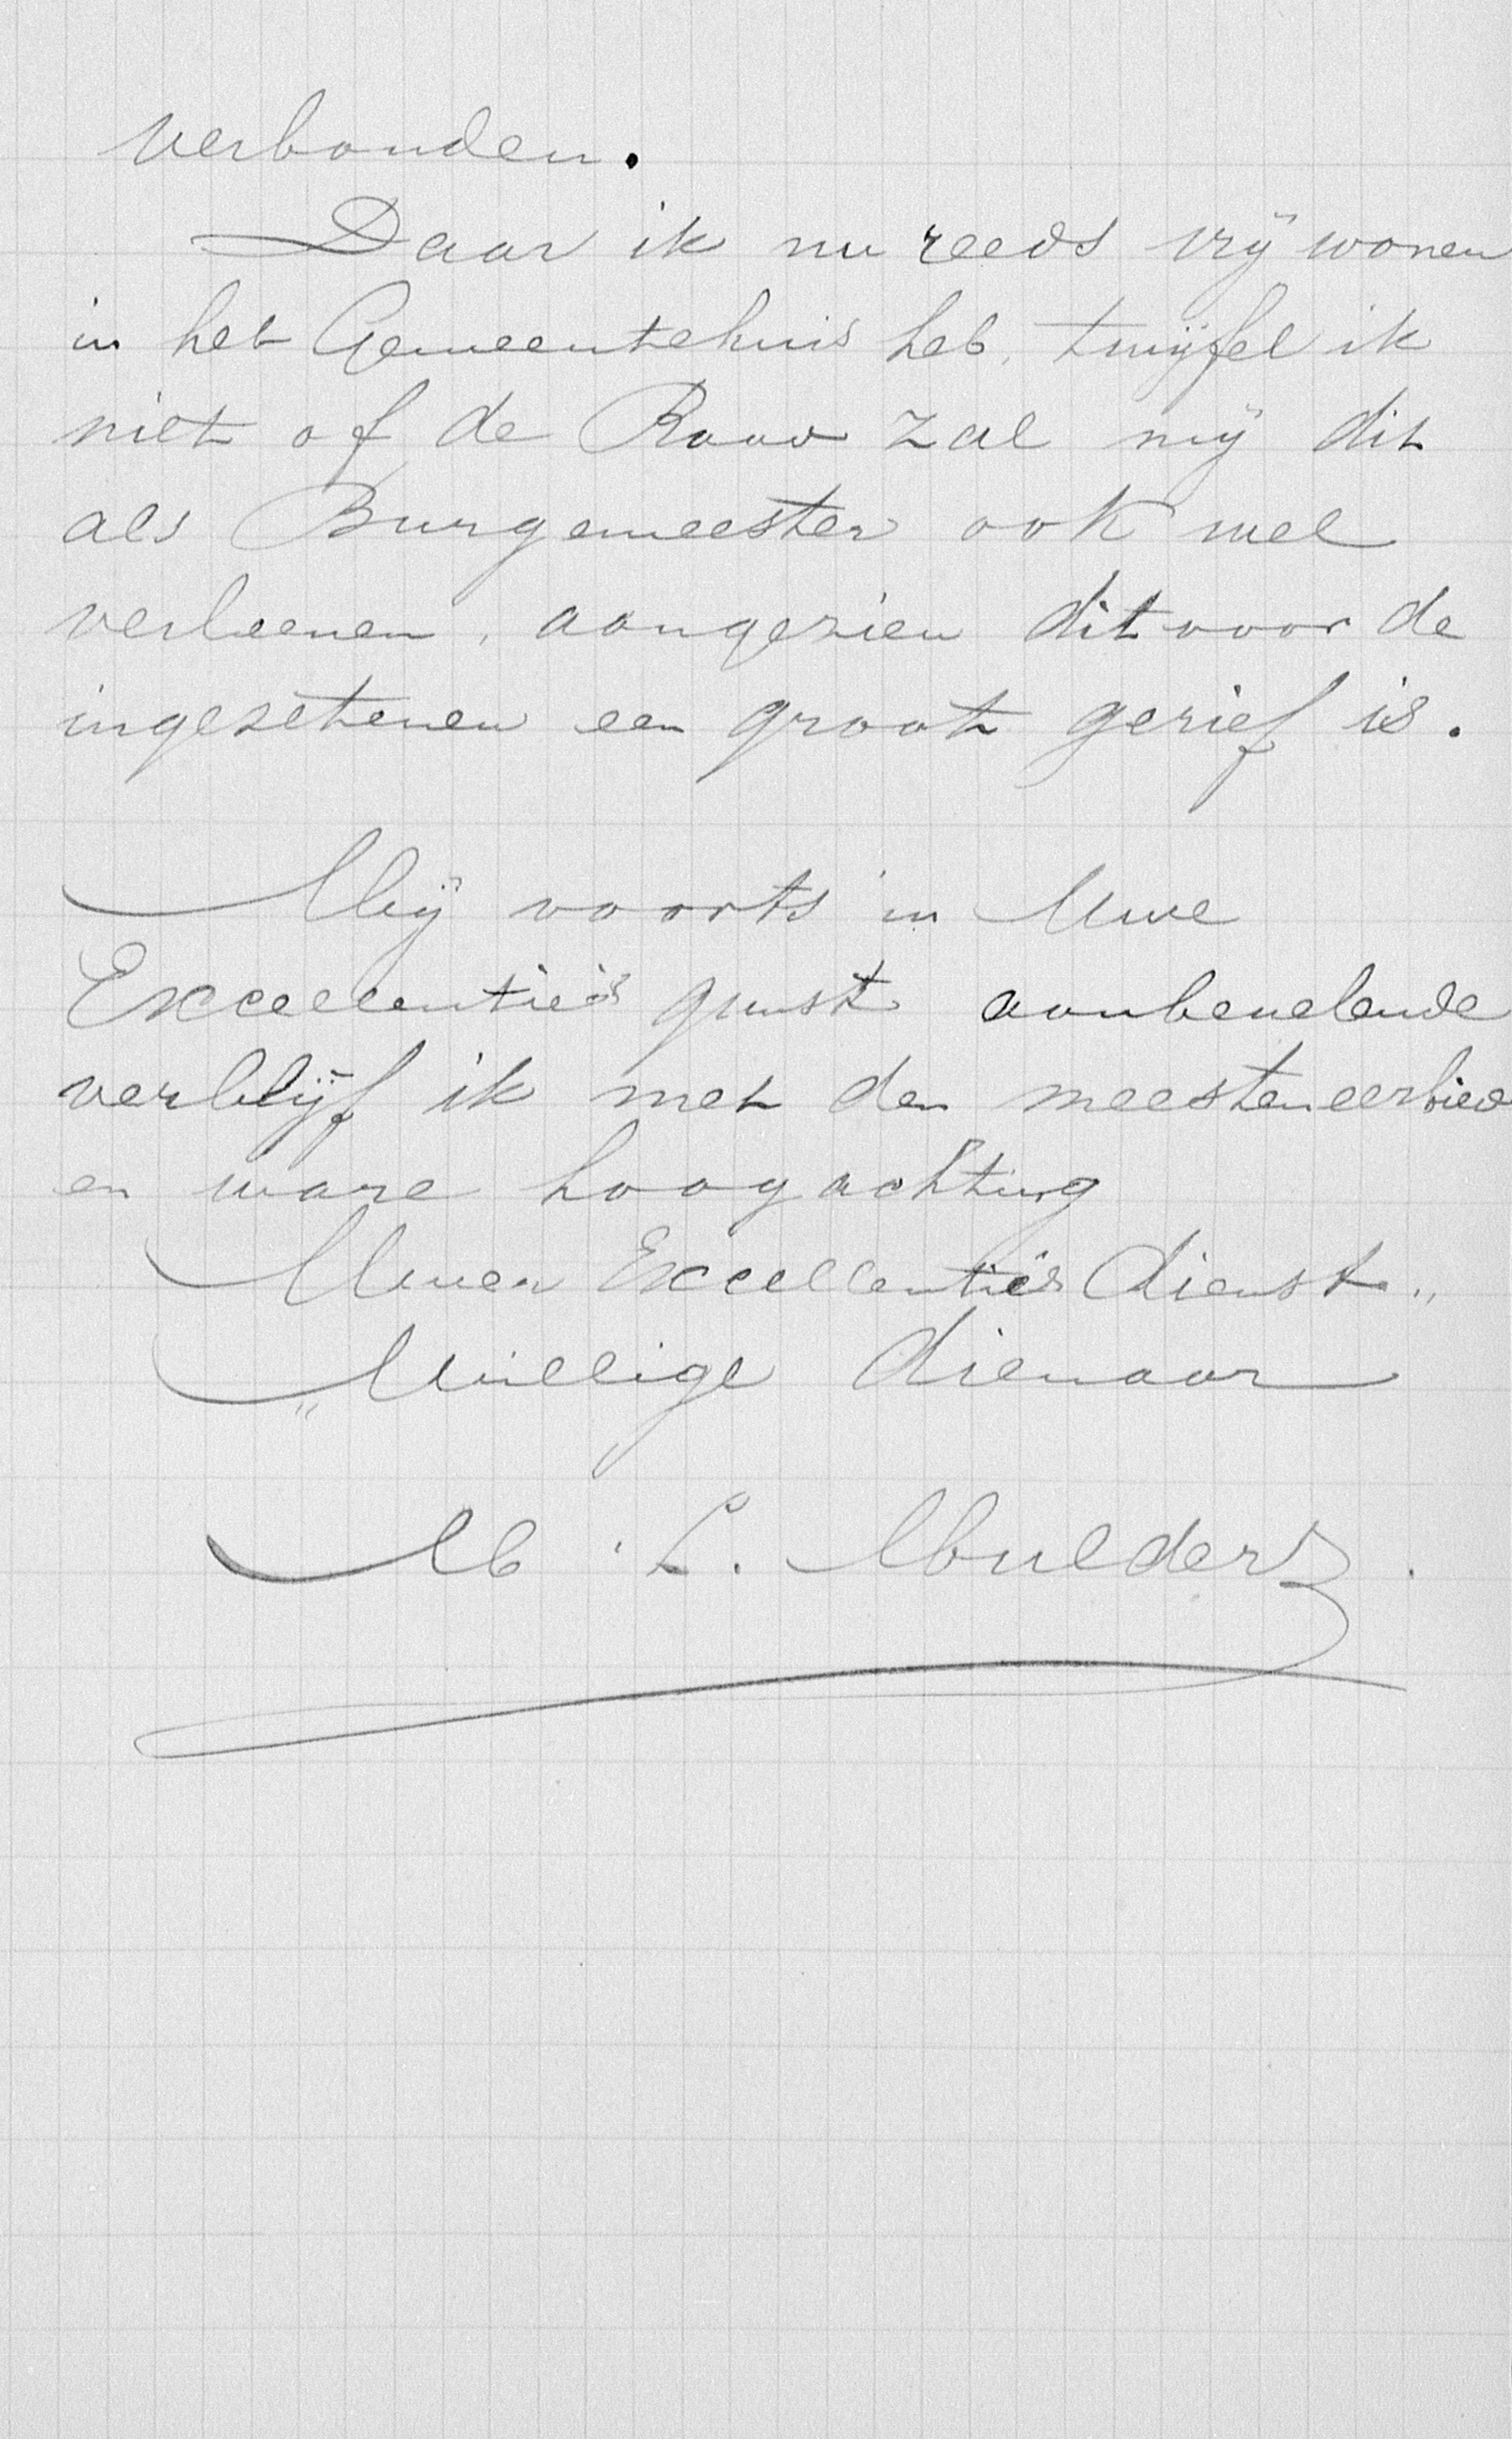 verbonden.
Daar ik nu reeds vrij wonen
in het Gemeentehuis heb, twijfel ik
niet of de Raad zal mij dit
als Burgemeester ook wel
verleenen, aangezien dit voor de
ingezetenen een groot gerief is.
Mij voorts in Uwe
Excellentie's gunst aanbevelende
verblijf ik met den meesten eerbied
en ware hoogachting
Uwer Excellentie's dienst„
„Willige dienaar
M. L. Mulders.